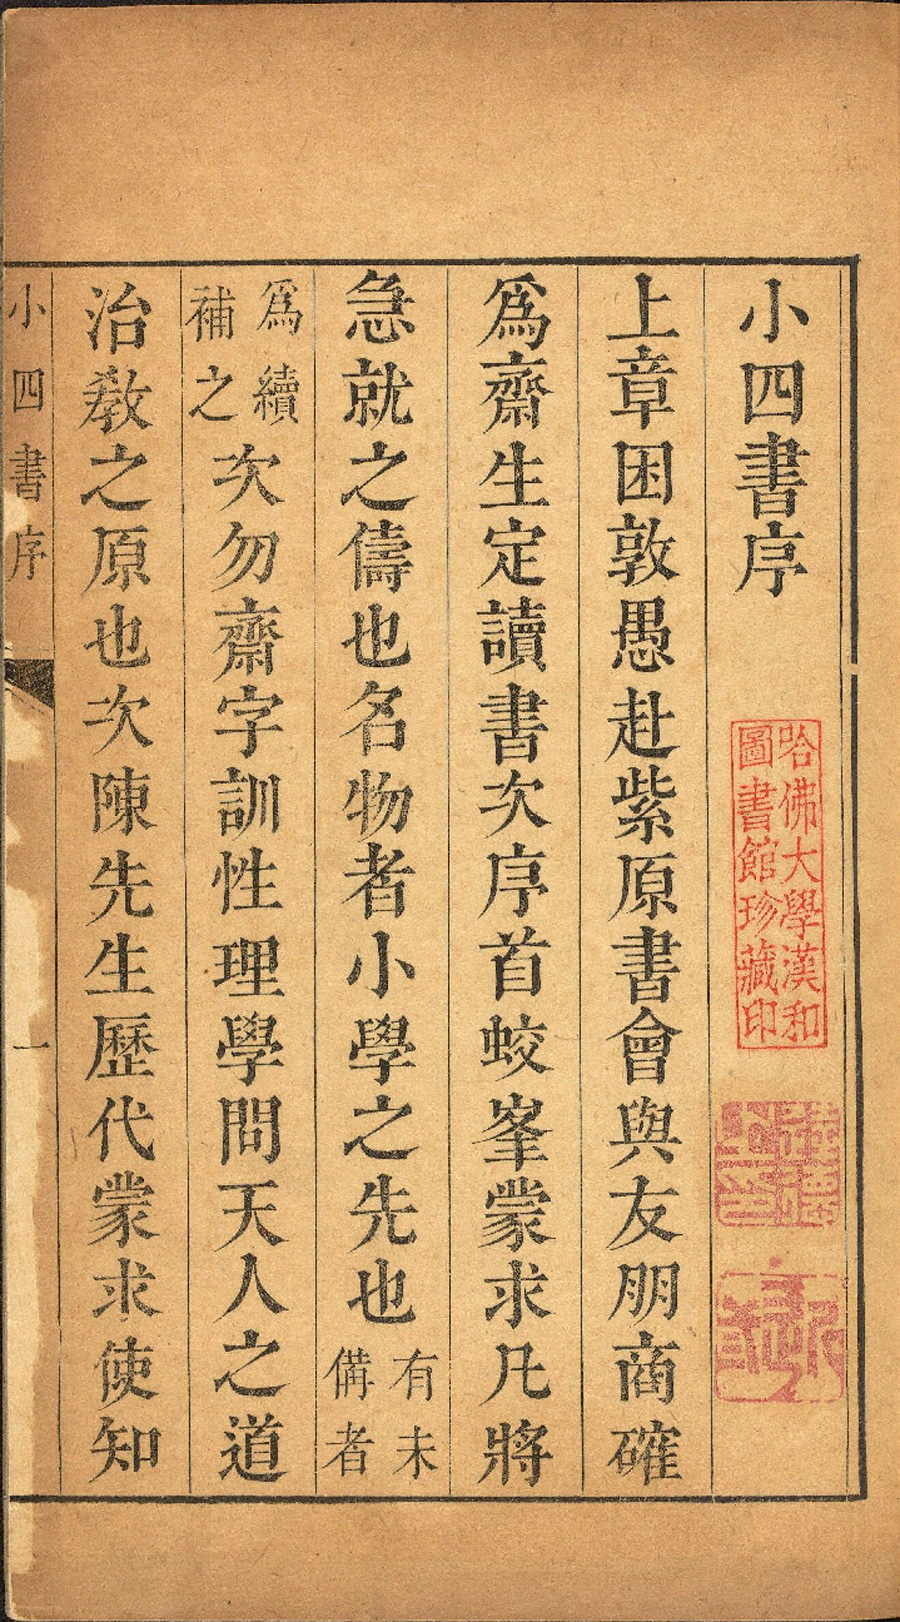 小四書序
哈佛大學漢和
圖書館珍藏印
上章困敦愚赴紫原書會與友朋商確
爲齋生定讀書次序首蛟峯蒙求凡將
急就之儔也名物者小學之先也有未
備者
爲續
補之
次勿齋字訓性理學問天人之道
治敎之原也次陳先生歷代蒙求使知
小四書序
一